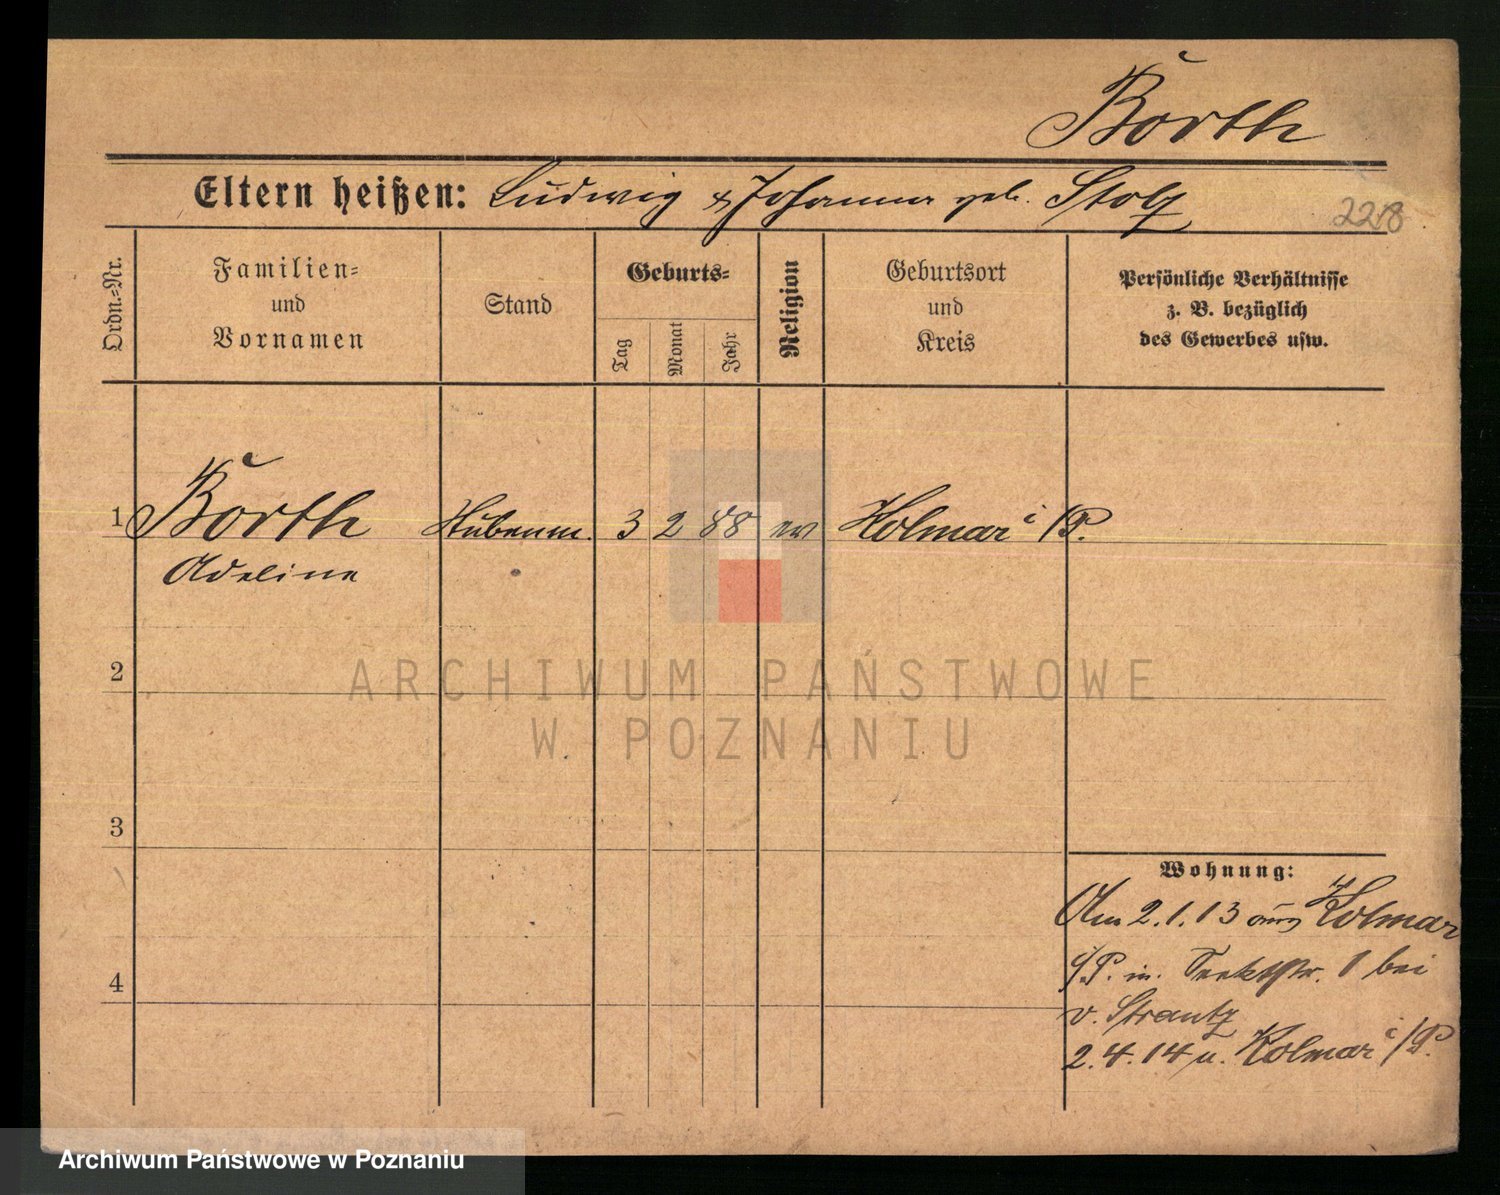 Borth
Eltern heißen: Ludwig & Johanna geb. Stolz
2218
Ordn.-Nr.
Familien-
und
Vornamen
Stand
Geburts-
Tag
Monat
Jahr
Religion
Geburtsort
und
Kreis
Persönliche Verhältnisse
z. B. bezüglich
des Gewerbes usw.
1 Borth Stubenm. 3 2 88 ev Kolmar i/P.
Adeline
2
ARCHIWUM PAŃSTWOWE
W POZNANIU
3
Wohnung:
Am 2.1.13 aus Kolmar
i/P. n. str. 1 bei
v. Strantz
4
2.4.14 n. Kolmar i/P.
Archiwum Państwowe w Poznaniu